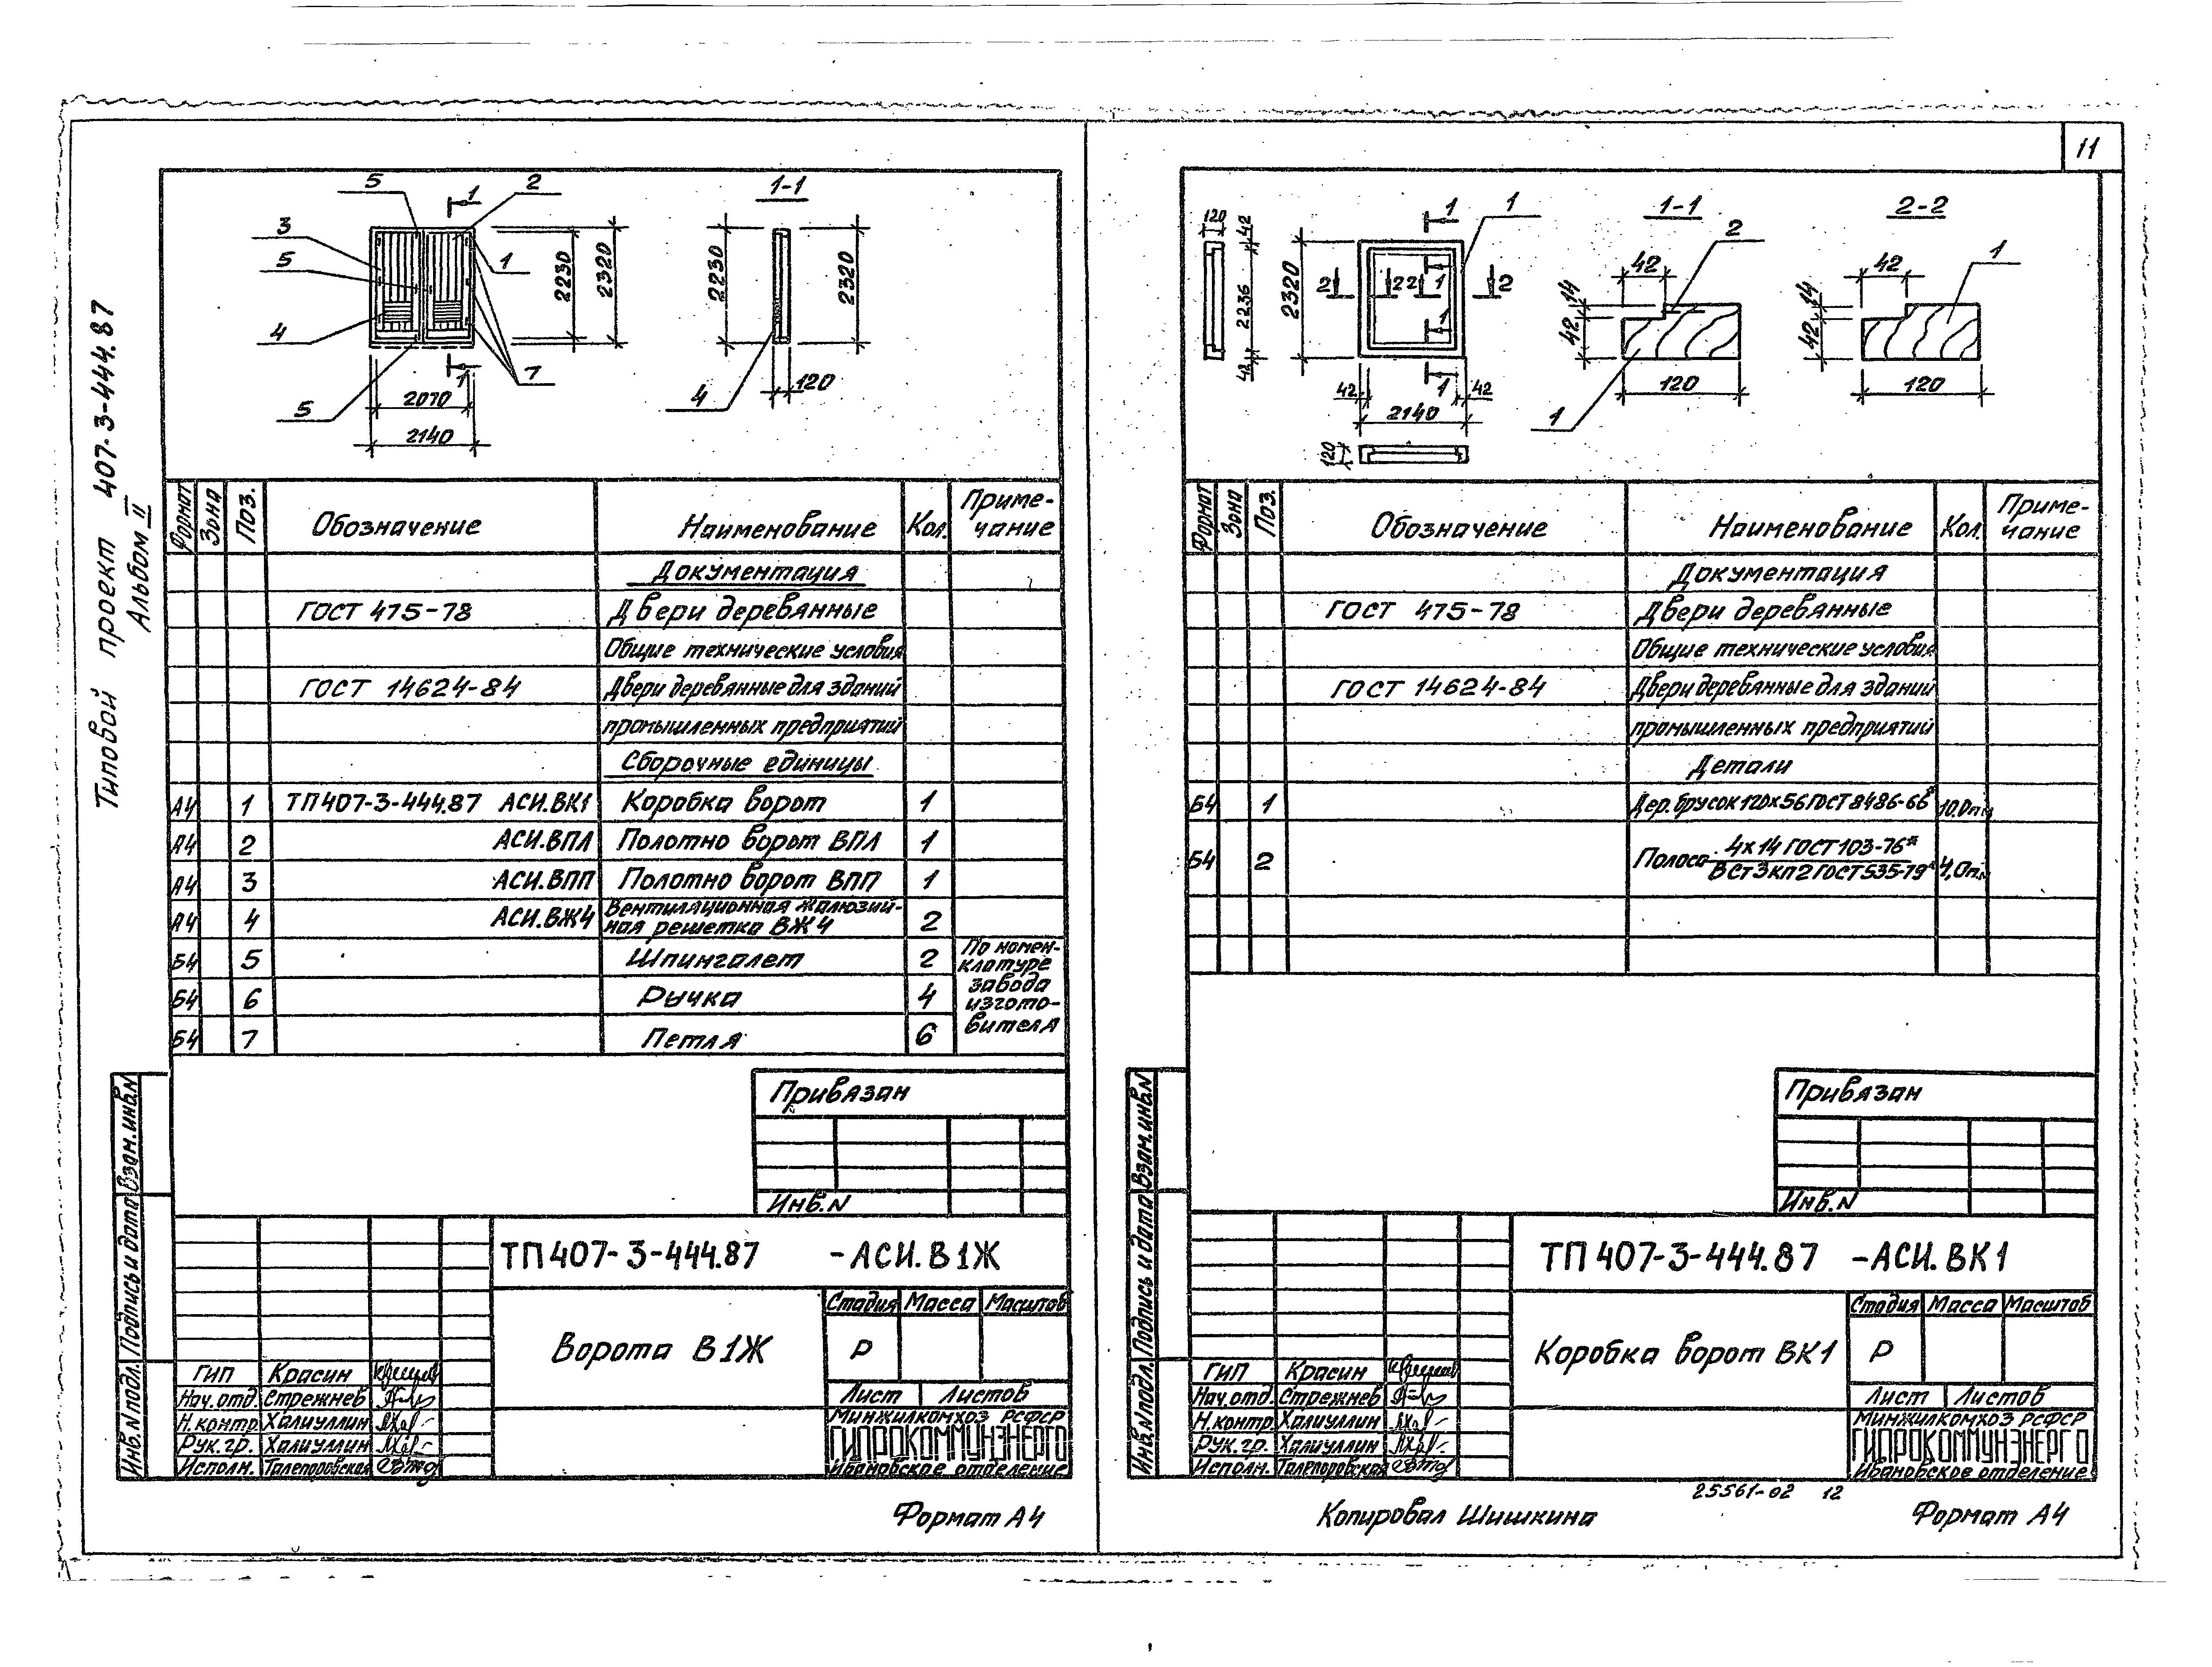 Типовой проект 407-3-444.87
Альбом II
11
5
1
2
1-1
3
5
1
4
7
1
5
2230
2320
2070
2140
2230
2320
4
120
Формат Зона Поз. Обозначение Наименование Кол. Примечание
Документация
ГОСТ 475-78 Двери деревянные
Общие технические условия
ГОСТ 14624-84 Двери деревянные для зданий
промышленных предприятий
Сборочные единицы
А4 1 ТП407-3-444.87 АСИ.ВК1 Коробка ворот 1
А4 2 АСИ.ВПЛ Полотно ворот ВПЛ 1
А4 3 АСИ.ВПП Полотно ворот ВПП 1
А4 4 АСИ.ВЖ4 Вентиляционная жалюзий-
ная решетка ВЖ4 2
Б4 5 Шпингалет 2
Б4 6 Ручка 4
Б4 7 Петля 6
По номен-
клатуре
завода
изгото-
вителя
Привязан
Инв.N
Взам.инв.N
Подпись и дата
Инв.N подл.
ТП407-3-444.87 -АСИ.В1Ж
Ворота В1Ж
Стадия Масса Масштаб
Р
Лист Листов
МИНЖИЛКОМХОЗ РСФСР
ГИПРОКОММУНЭНЕРГО
Ивановское отделение
ГИП Красин
Нач.отд. Стрежнев
Н.контр. Халиуллин
Рук.гр. Халиуллин
Исполн. Талепоровская
Формат А4
120
42
2236
42
2320
1
1
2
2
2
2
1
1
1
42
42
2140
120
1-1
2
42
14
42
120
1
2-2
42
1
14
42
120
Формат Зона Поз. Обозначение Наименование Кол. Примечание
Документация
ГОСТ 475-78 Двери деревянные
Общие технические условия
ГОСТ 14624-84 Двери деревянные для зданий
промышленных предприятий
Детали
Б4 1 Дер. брусок 120х56 ГОСТ 8486-66* 10.0п.м
Б4 2 Полоса 4х14 ГОСТ 103-76*
ВСт3кп2 ГОСТ 535-79* 4,0п.м
Привязан
Инв.N
Взам.инв.N
Подпись и дата
Инв.N подл.
ТП407-3-444.87 -АСИ.ВК1
Коробка ворот ВК1
Стадия Масса Масштаб
Р
Лист Листов
МИНЖИЛКОМХОЗ РСФСР
ГИПРОКОММУНЭНЕРГО
Ивановское отделение
ГИП Красин
Нач.отд. Стрежнев
Н.контр. Халиуллин
Рук.гр. Халиуллин
Исполн. Талепоровская
25561-02 12
Копировал Шишкина
Формат А4